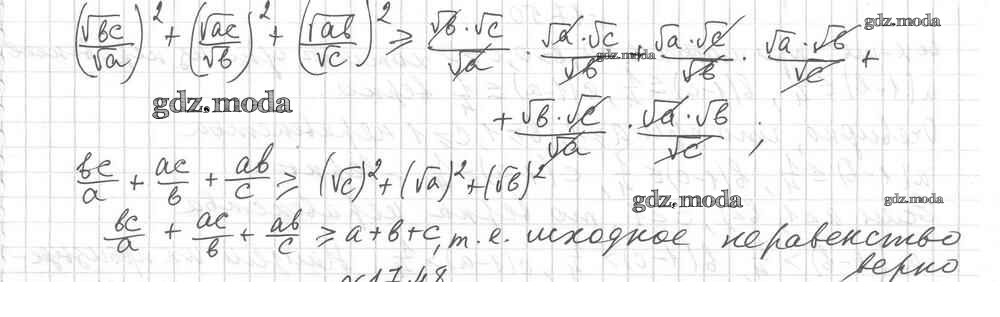 (√bc/√a)² + (√ac/√b)² + (√ab/√c)² ≥ √b·√c/√a · √a·√c/√b + √a·√c/√b · √a·√b/√c +
gdz.moda
gdz.moda
gdz.moda
+ √b·√c/√a · √a·√b/√c ;
bc/a + ac/b + ab/c ≥ (√c)² + (√a)² + (√b)²
gdz.moda
gdz.moda
bc/a + ac/b + ab/c ≥ a+b+c, т.е. исходное неравенство
верно